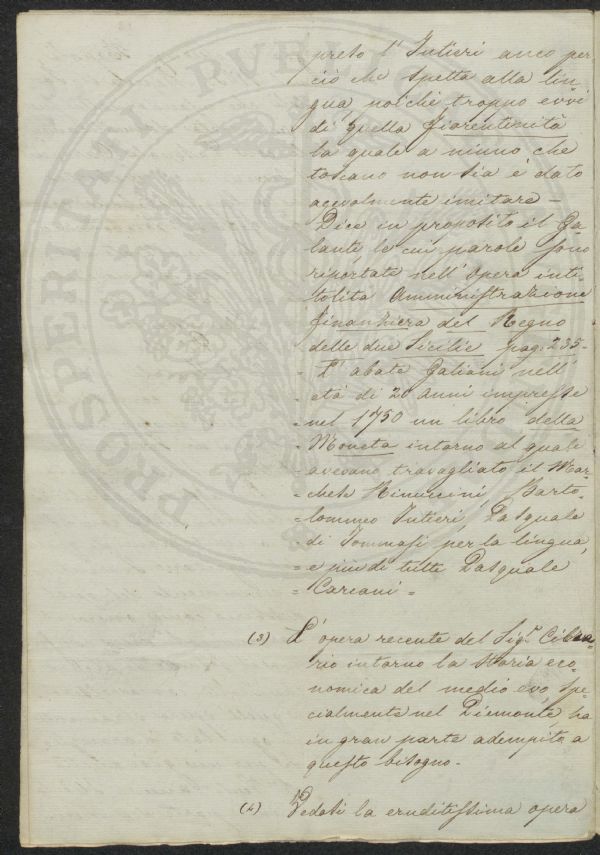 preso l'Intieri anco per
ciò che spetta alla lin
gua, poichè troppo evvi
di quella fiorentinità
la quale a niuno che
toscano non sia è dato
agevolmente imitare -
Dice in proposito il Ga-
lanti, le cui parole sono
riportate nell'opera inti
tolita Amministrazione
finanziera del Regno
delle due Sicilie pag. 235-
- L'abate Galiani nell'
- età di 20 anni impresse
- nel 1750 un libro della
- Moneta intorno al quale
- avevano travagliato il Mar-
- chese Rinuccini, Barto-
- lommeo Intieri, Pasquale
- di Tommasi per la lingua,
- e più di tutti Pasquale
= Carcani =
(3) L'opera recente del Sig.r Cibra-
rio intorno la storia eco-
nomica del medio evo, spe-
cialmente nel Piemonte, ha
in gran parte adempito a
questo bisogno.
(4) Vedasi la eruditissima opera
PROSPERITATI PVBLI